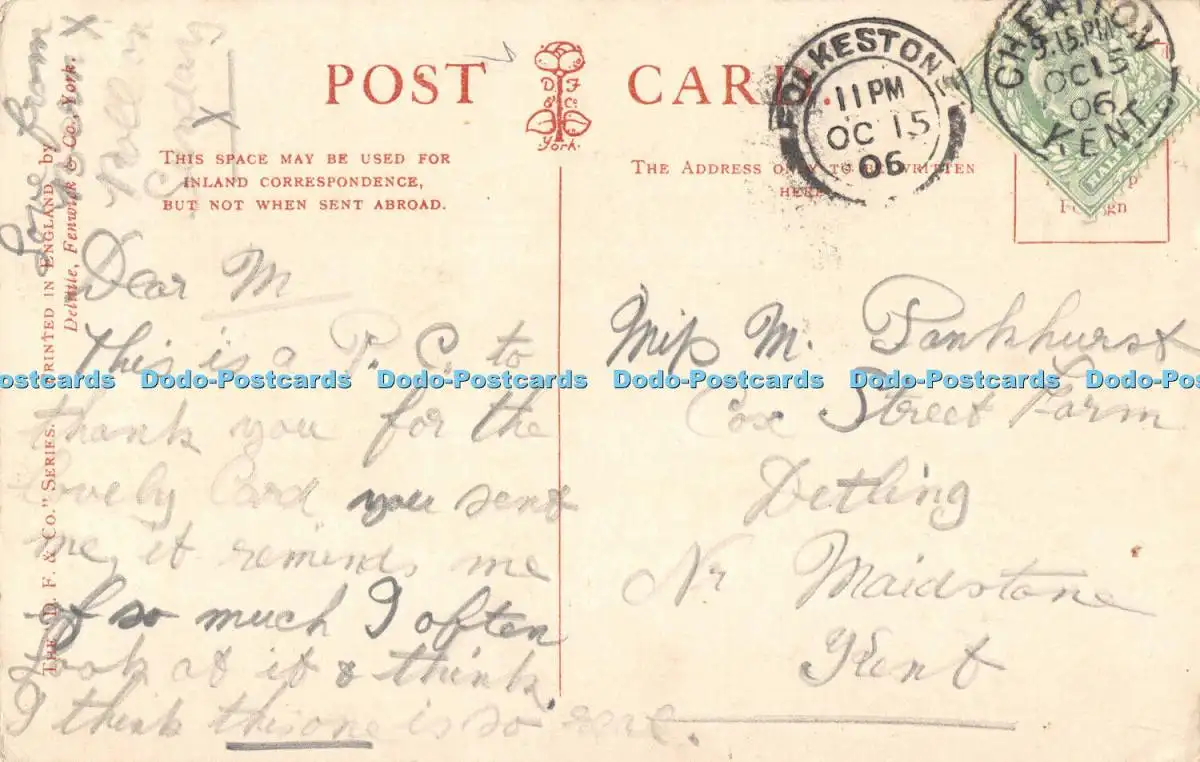 POST CARD.
D F
& Co.
York.
THIS SPACE MAY BE USED FOR
INLAND CORRESPONDENCE,
BUT NOT WHEN SENT ABROAD.
THE ADDRESS ONLY TO BE WRITTEN
HERE
FOLKESTONE
11 PM
OC 15
06
CHERITON
9.15 PM
OC 15
06
KENT
HALFPENNY
THE "D. F. & CO." SERIES. PRINTED IN ENGLAND by
Delittle, Fenwick & Co., York.
Love from
X
X
Dear M
This is a P. C. to
thank you for the
lovely Card you sent
me, it reminds me
of so much I often
look at it & think.
I think this one is so real.
Miss M. Pankhurst
Cox Street Farm
Detling
Nr Maidstone
Kent
Dodo-Postcards Dodo-Postcards Dodo-Postcards Dodo-Postcards Dodo-Postcards Dodo-Postcards